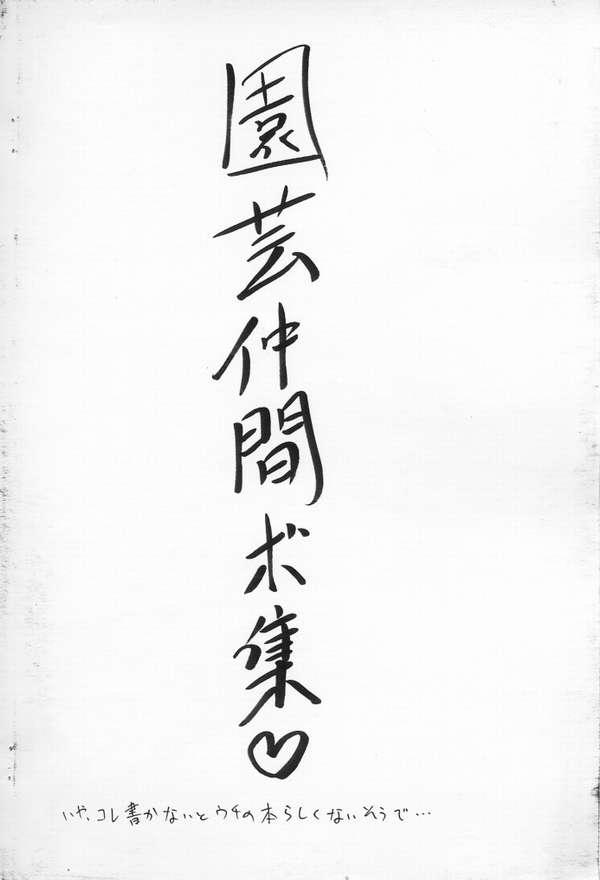 園芸仲間ボ集♡
いや、コレ書かないとウチの本らしくないそうで…